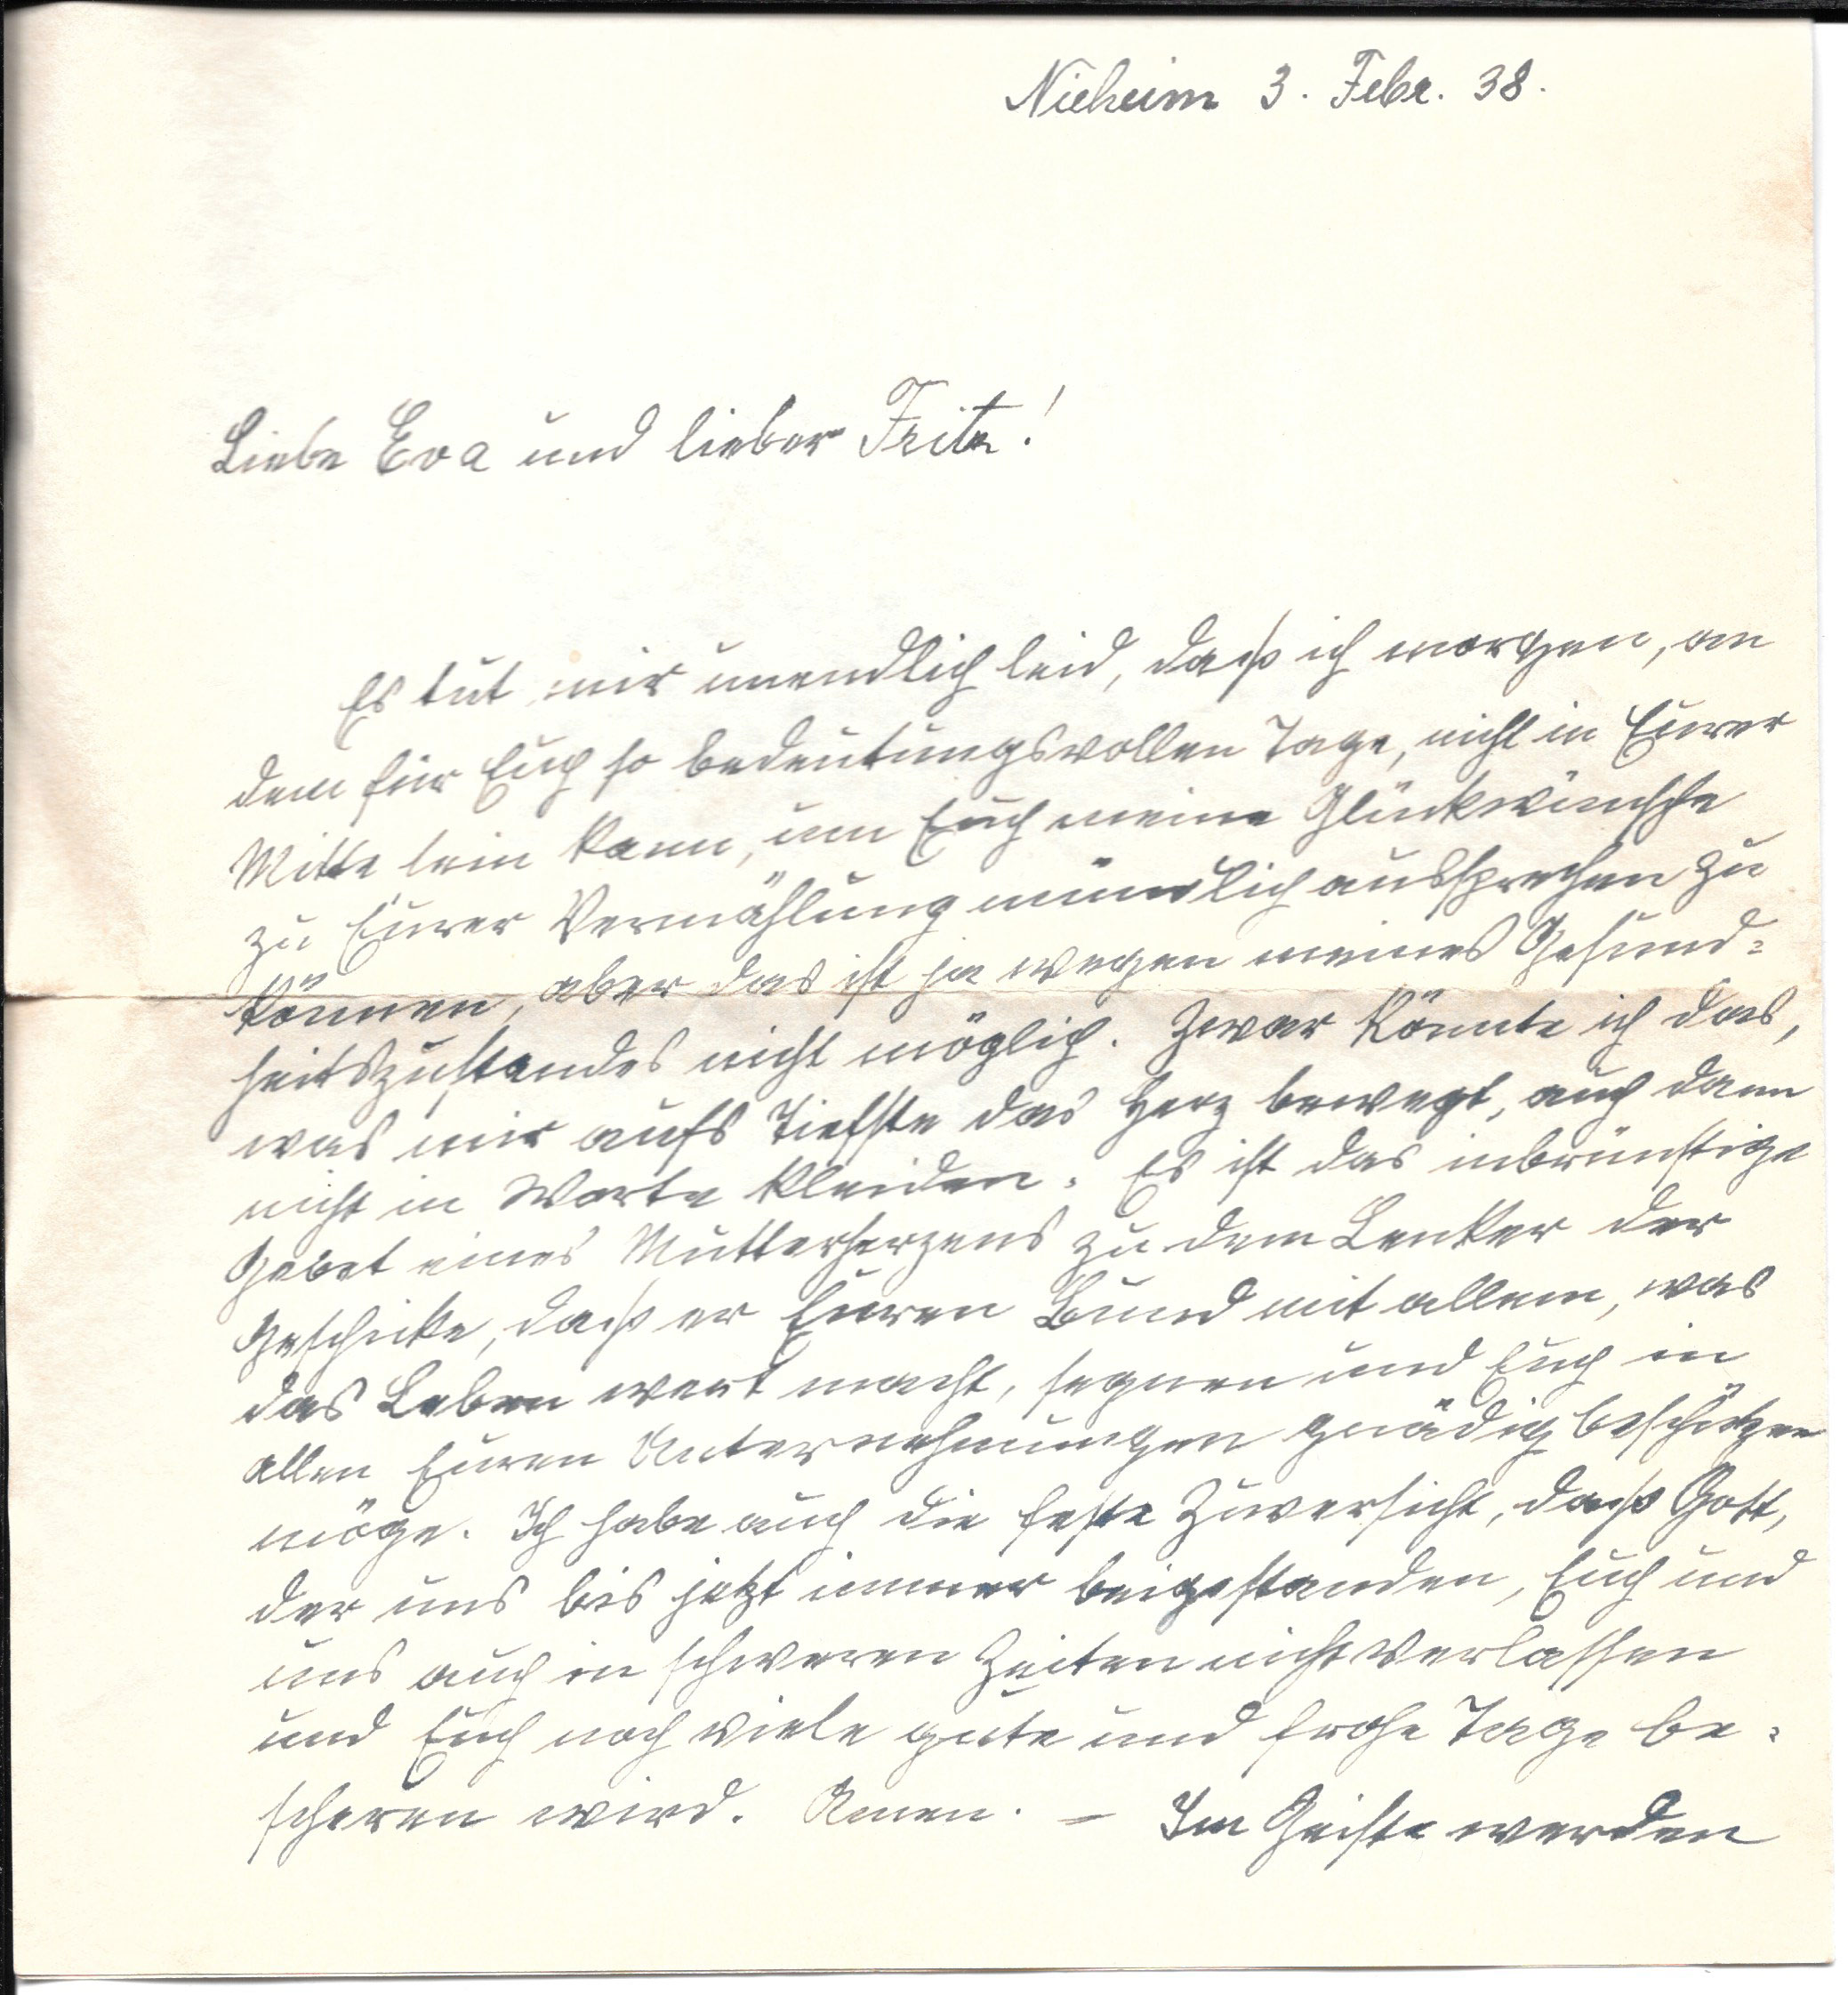 Nieheim 3. Febr. 38.
Liebe Eva und lieber Fritz!
Es tut mir unendlich leid, daß ich morgen, an
dem für Euch so bedeutungsvollen Tage, nicht in Eurer
Mitte sein kann, um Euch meine Glückwünsche
zu Eurer Vermählung mündlich aussprechen zu
können, aber das ist ja wegen meines Gesund=
heitszustandes nicht möglich. Zwar könnte ich das,
was mir aufs Tiefste das Herz bewegt, auch dann
nicht in Worte kleiden. Es ist das inbrünstige
Gebet eines Mutterherzens zu dem Lenker der
Geschicke, daß er Euren Bund mit allem, was
das Leben wert macht, segnen und Euch in
allen Euren Unternehmungen gnädig beschützen
möge. Ich habe auch die feste Zuversicht, daß Gott,
der uns bis jetzt immer beigestanden, Euch und
uns auch in schweren Zeiten nicht verlassen
und Euch noch viele gute und frohe Tage be=
scheren wird. Amen. – Im Geiste werden